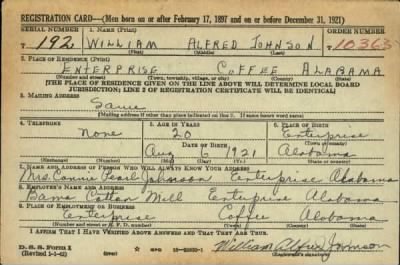 REGISTRATION CARD—(Men born on or after February 17, 1897 and on or before December 31, 1921)
SERIAL NUMBER 1. NAME (Print) ORDER NUMBER
T 192 WILLIAM ALFRED JOHNSON T 10363
(First) (Middle) (Last)
2. PLACE OF RESIDENCE (Print)
ENTERPRISE COFFEE ALABAMA
(Number and street) (Town, township, village, or city) (County) (State)
[THE PLACE OF RESIDENCE GIVEN ON THE LINE ABOVE WILL DETERMINE LOCAL BOARD
JURISDICTION; LINE 2 OF REGISTRATION CERTIFICATE WILL BE IDENTICAL]
3. MAILING ADDRESS
Same
[Mailing address if other than place indicated on line 2. If same insert word same]
4. TELEPHONE 5. AGE IN YEARS 6. PLACE OF BIRTH
None 20 Enterprise
DATE OF BIRTH (Town or county)
Aug 6 1921 Alabama
(Exchange) (Number) (Mo.) (Day) (Yr.) (State or country)
7. NAME AND ADDRESS OF PERSON WHO WILL ALWAYS KNOW YOUR ADDRESS
Mrs. Connie Pearl Johnson Enterprise Alabama
8. EMPLOYER'S NAME AND ADDRESS
Bama Cotton Mill Enterprise Alabama
9. PLACE OF EMPLOYMENT OR BUSINESS
Enterprise Coffee Alabama
(Number and street or R. F. D. number) (Town) (County) (State)
I AFFIRM THAT I HAVE VERIFIED ABOVE ANSWERS AND THAT THEY ARE TRUE.
D. S. S. Form 1
(Revised 1-1-42) (over) GPO William Alfred Johnson
(Registrant's signature)